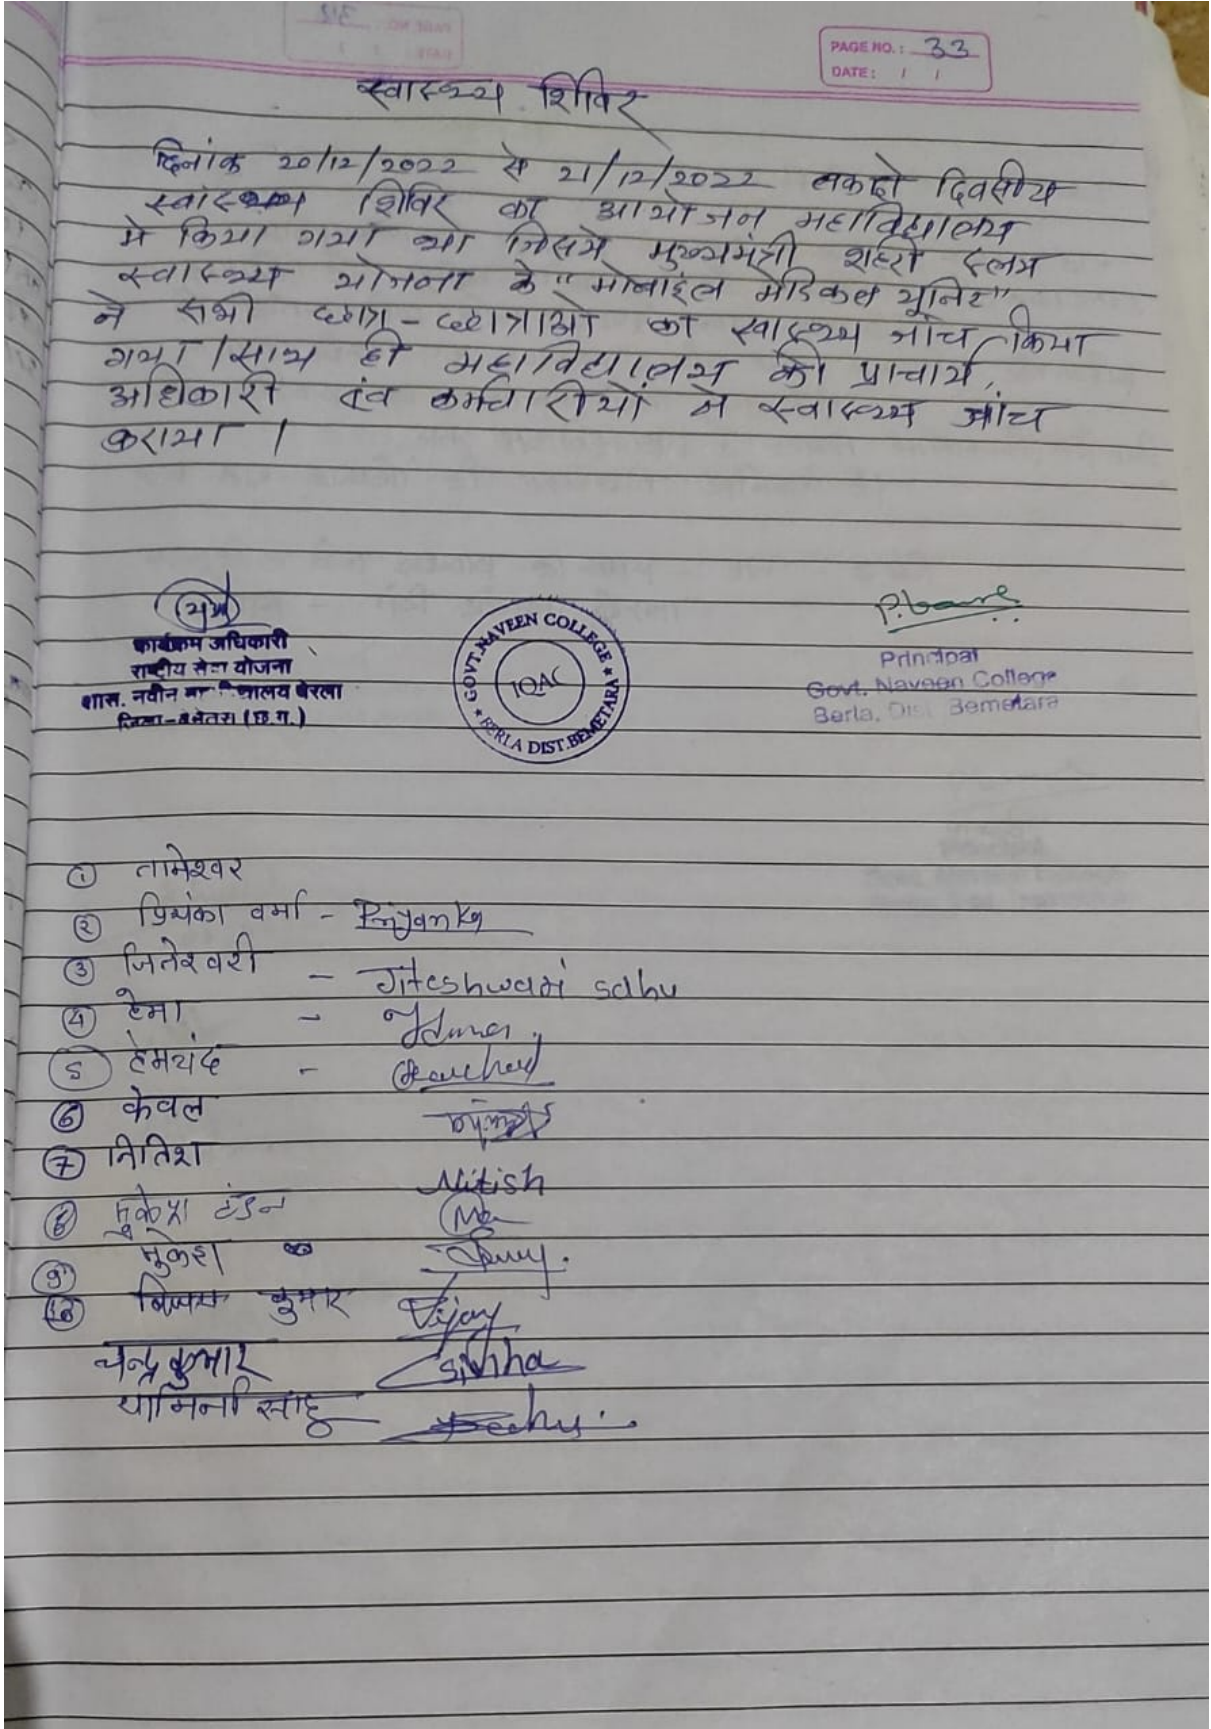 PAGE NO.: 33
DATE: / /
स्वास्थ्य शिविर
दिनांक 20/12/2022 से 21/12/2022 तक दो दिवसीय
स्वास्थ्य शिविर का आयोजन महाविद्यालय
मे किया गया था जिसमे मुख्यमंत्री शहरी स्लम
स्वास्थ्य योजना के "मोबाइल मेडिकल यूनिट"
ने सभी छात्र-छात्राओ का स्वास्थ्य जांच किया
गया। साथ ही महाविद्यालय की प्राचार्य,
अधिकारी एंव कर्मचारीयों ने स्वास्थ्य जांच
कराया।
कार्यक्रम अधिकारी
राष्ट्रीय सेवा योजना
शास. नवीन बेरला
जिला-बेमेतरा (छ.ग.)
GOVT. NAVEEN COLLEGE
IQAC
BERLA DIST. BEMETARA
Principal
Govt. Naveen College
Berla, Dist Bemetara
① तामेश्वर
② प्रियंका वर्मा - Priyanka
③ जितेश्वरी - Jiteshwari sahu
④ हेमा -
⑤ हेमचंद -
⑥ केवल
⑦ नितिश Nitish
⑧ मुकेश टंडन
⑨ मुकेश
⑩ विजय कुमार Vijay
चन्द्र कुमार sinha
यामिनी साहू